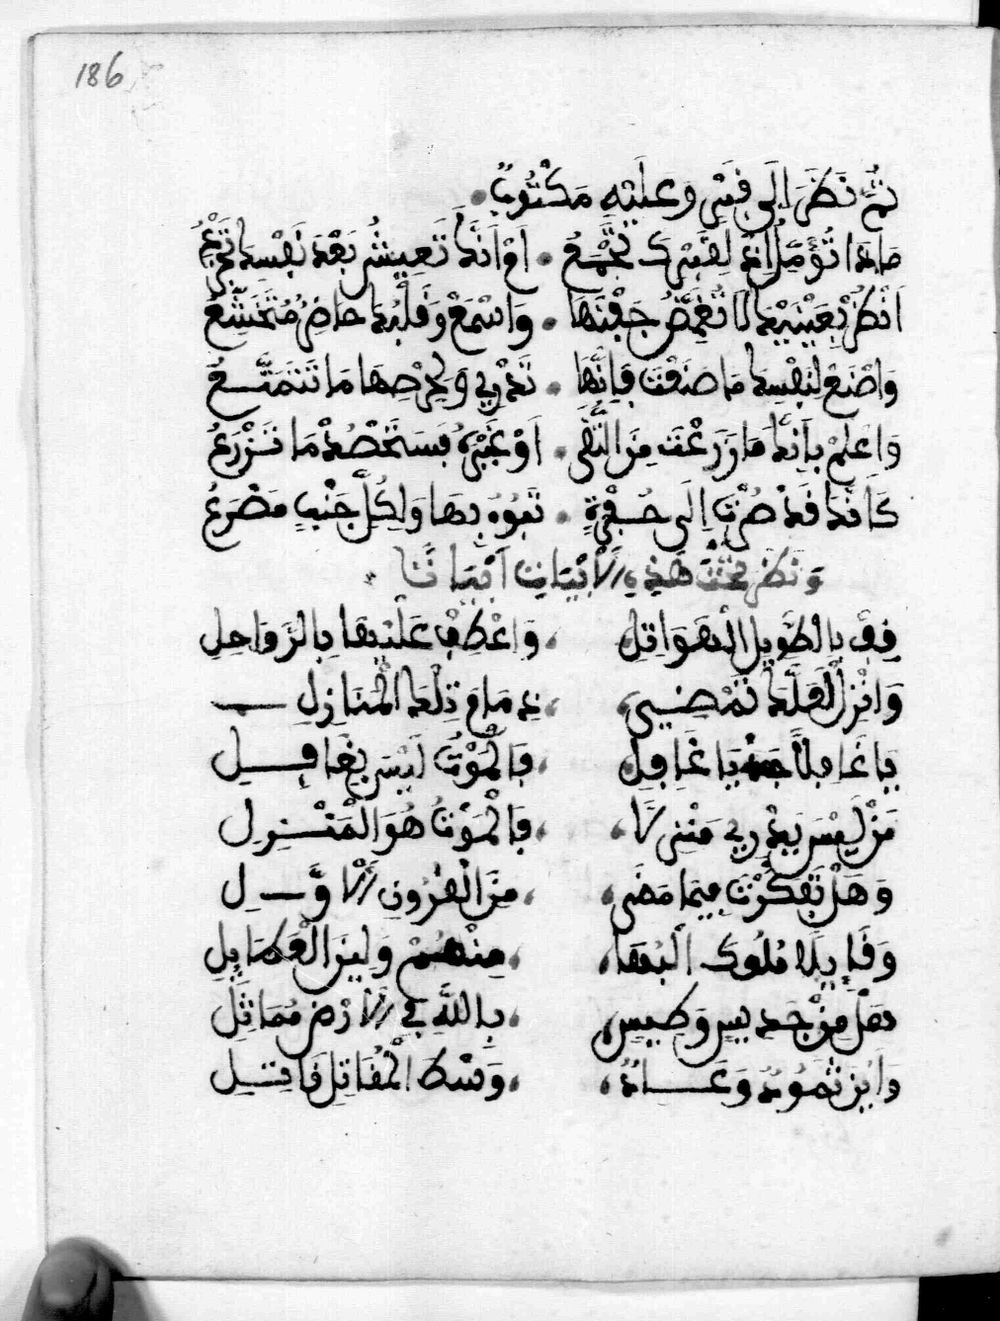 186
ثُمَّ نَظَرَ إِلَى قَبْرٍ وَعَلَيْهِ مَكْتُوبٌ
مَاذَا تُؤَمِّلُ إِنْ لِقَبْرِكَ تُجْمَعُ . أَوْ أَنَّكَ تَعِيشُ بَعْدَ نَفْسِكَ
انْظُرْ بِعَيْنَيْكَ لَا تُغَمِّضُ جَفْنَهَا . وَاسْمَعْ وَقَلْبُكَ حَاضِرٌ مُتَخَشِّعُ
وَاصْنَعْ لِنَفْسِكَ مَا صَنَعْتَ فَإِنَّهَا . تَدْرِي وَ مَا تَتَمَتَّعُ
وَاعْلَمْ بِأَنَّكَ مَا زَرَعْتَ مِنَ التُّقَى . أَوْ غَيْرِهِ فَسَتَحْصُدْ مَا تَزْرَعُ
كَأَنَّكَ قَدْ صِرْتَ إِلَى حُفْرَةٍ . تَبُوءُ بِهَا وَلِكُلِّ جَنْبٍ مَصْرَعُ
وَنَظَرَ تَحْتَ هَذِهِ الْأَبْيَاتِ أَبْيَاتًا
قِفْ بِالطَّوِيلِ ، وَاعْطِفْ عَلَيْهَا بِالرَّوَاحِلِ
وَانْزِلْ لَعَلَّكَ تَمْضِي ، تِلْكَ الْمَنَازِلِ
يَا غَافِلًا يَا غَافِلِ ، فَالْمَوْتُ لَيْسَ بِغَافِلِ
مَنْ لَيْسَ يَدْرِي مَنْزِلًا ، فَالْمَوْتُ هُوَ الْمَنْزِلِ
وَهَلْ تَفَكَّرْتَ فِيمَا مَضَى ، مِنَ الْقُرُونِ الْأَوَّلِ
مُلُوكِ ، مِنْهُمْ وَلِينَ
هَلْ مِنْ جَدِيسٍ وَطَسِيسِ ، بِاللَّهِ فِي الْأَرْضِ مُمَاثِلِ
وَأَيْنَ ثَمُودُ وَعَادُ ، الْمَقَاتِلِ